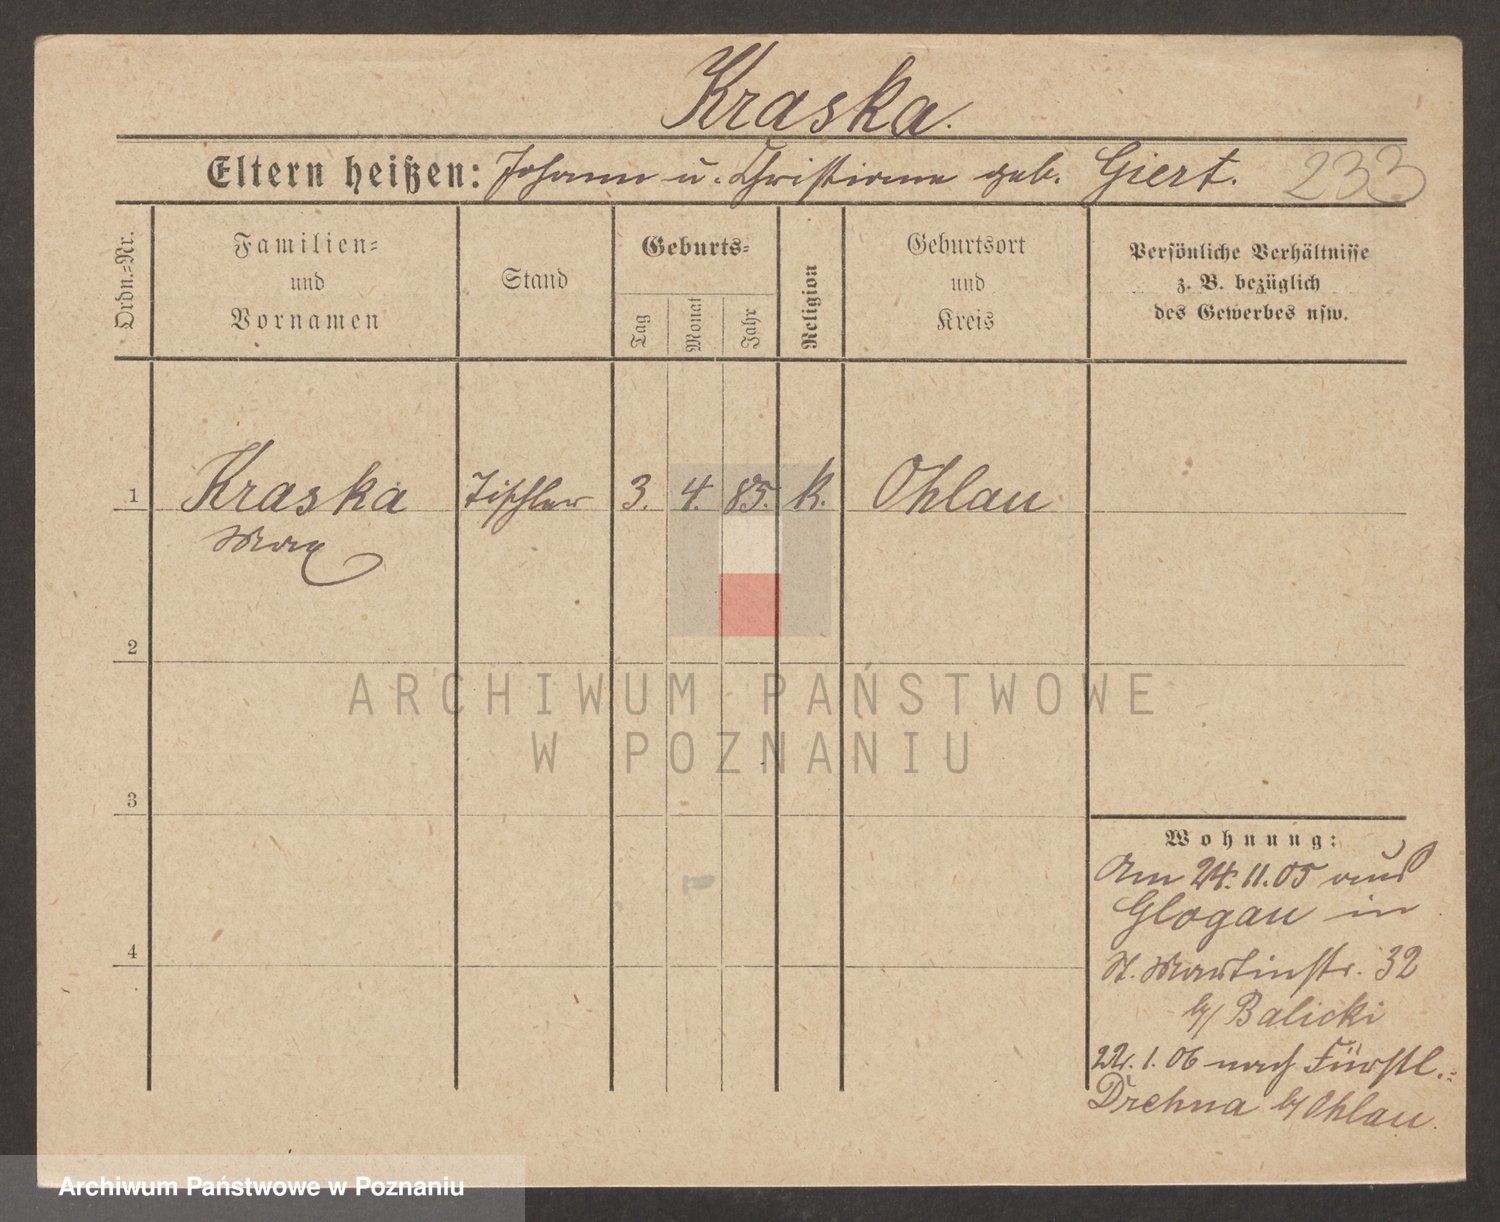 Kraska.
Eltern heißen: Johann u. Christiane geb. Giert. 233
Ordn.-Nr.
Familien-
und
Vornamen
Stand
Geburts-
Tag
Monat
Jahr
Religion
Geburtsort
und
Kreis
Persönliche Verhältnisse
z. B. bezüglich
des Gewerbes usw.
1 Kraska Tischler 3. 4. 85. k. Ohlau
Max
2
ARCHIWUM PAŃSTWOWE
W POZNANIU
3
Wohnung:
Am 24.11.05 aus
Glogau in
4
St. Martinstr. 32
b/ Balicki
22.1.06 nach Fürstl.-
Drehna b/ Ohlau.
Archiwum Państwowe w Poznaniu